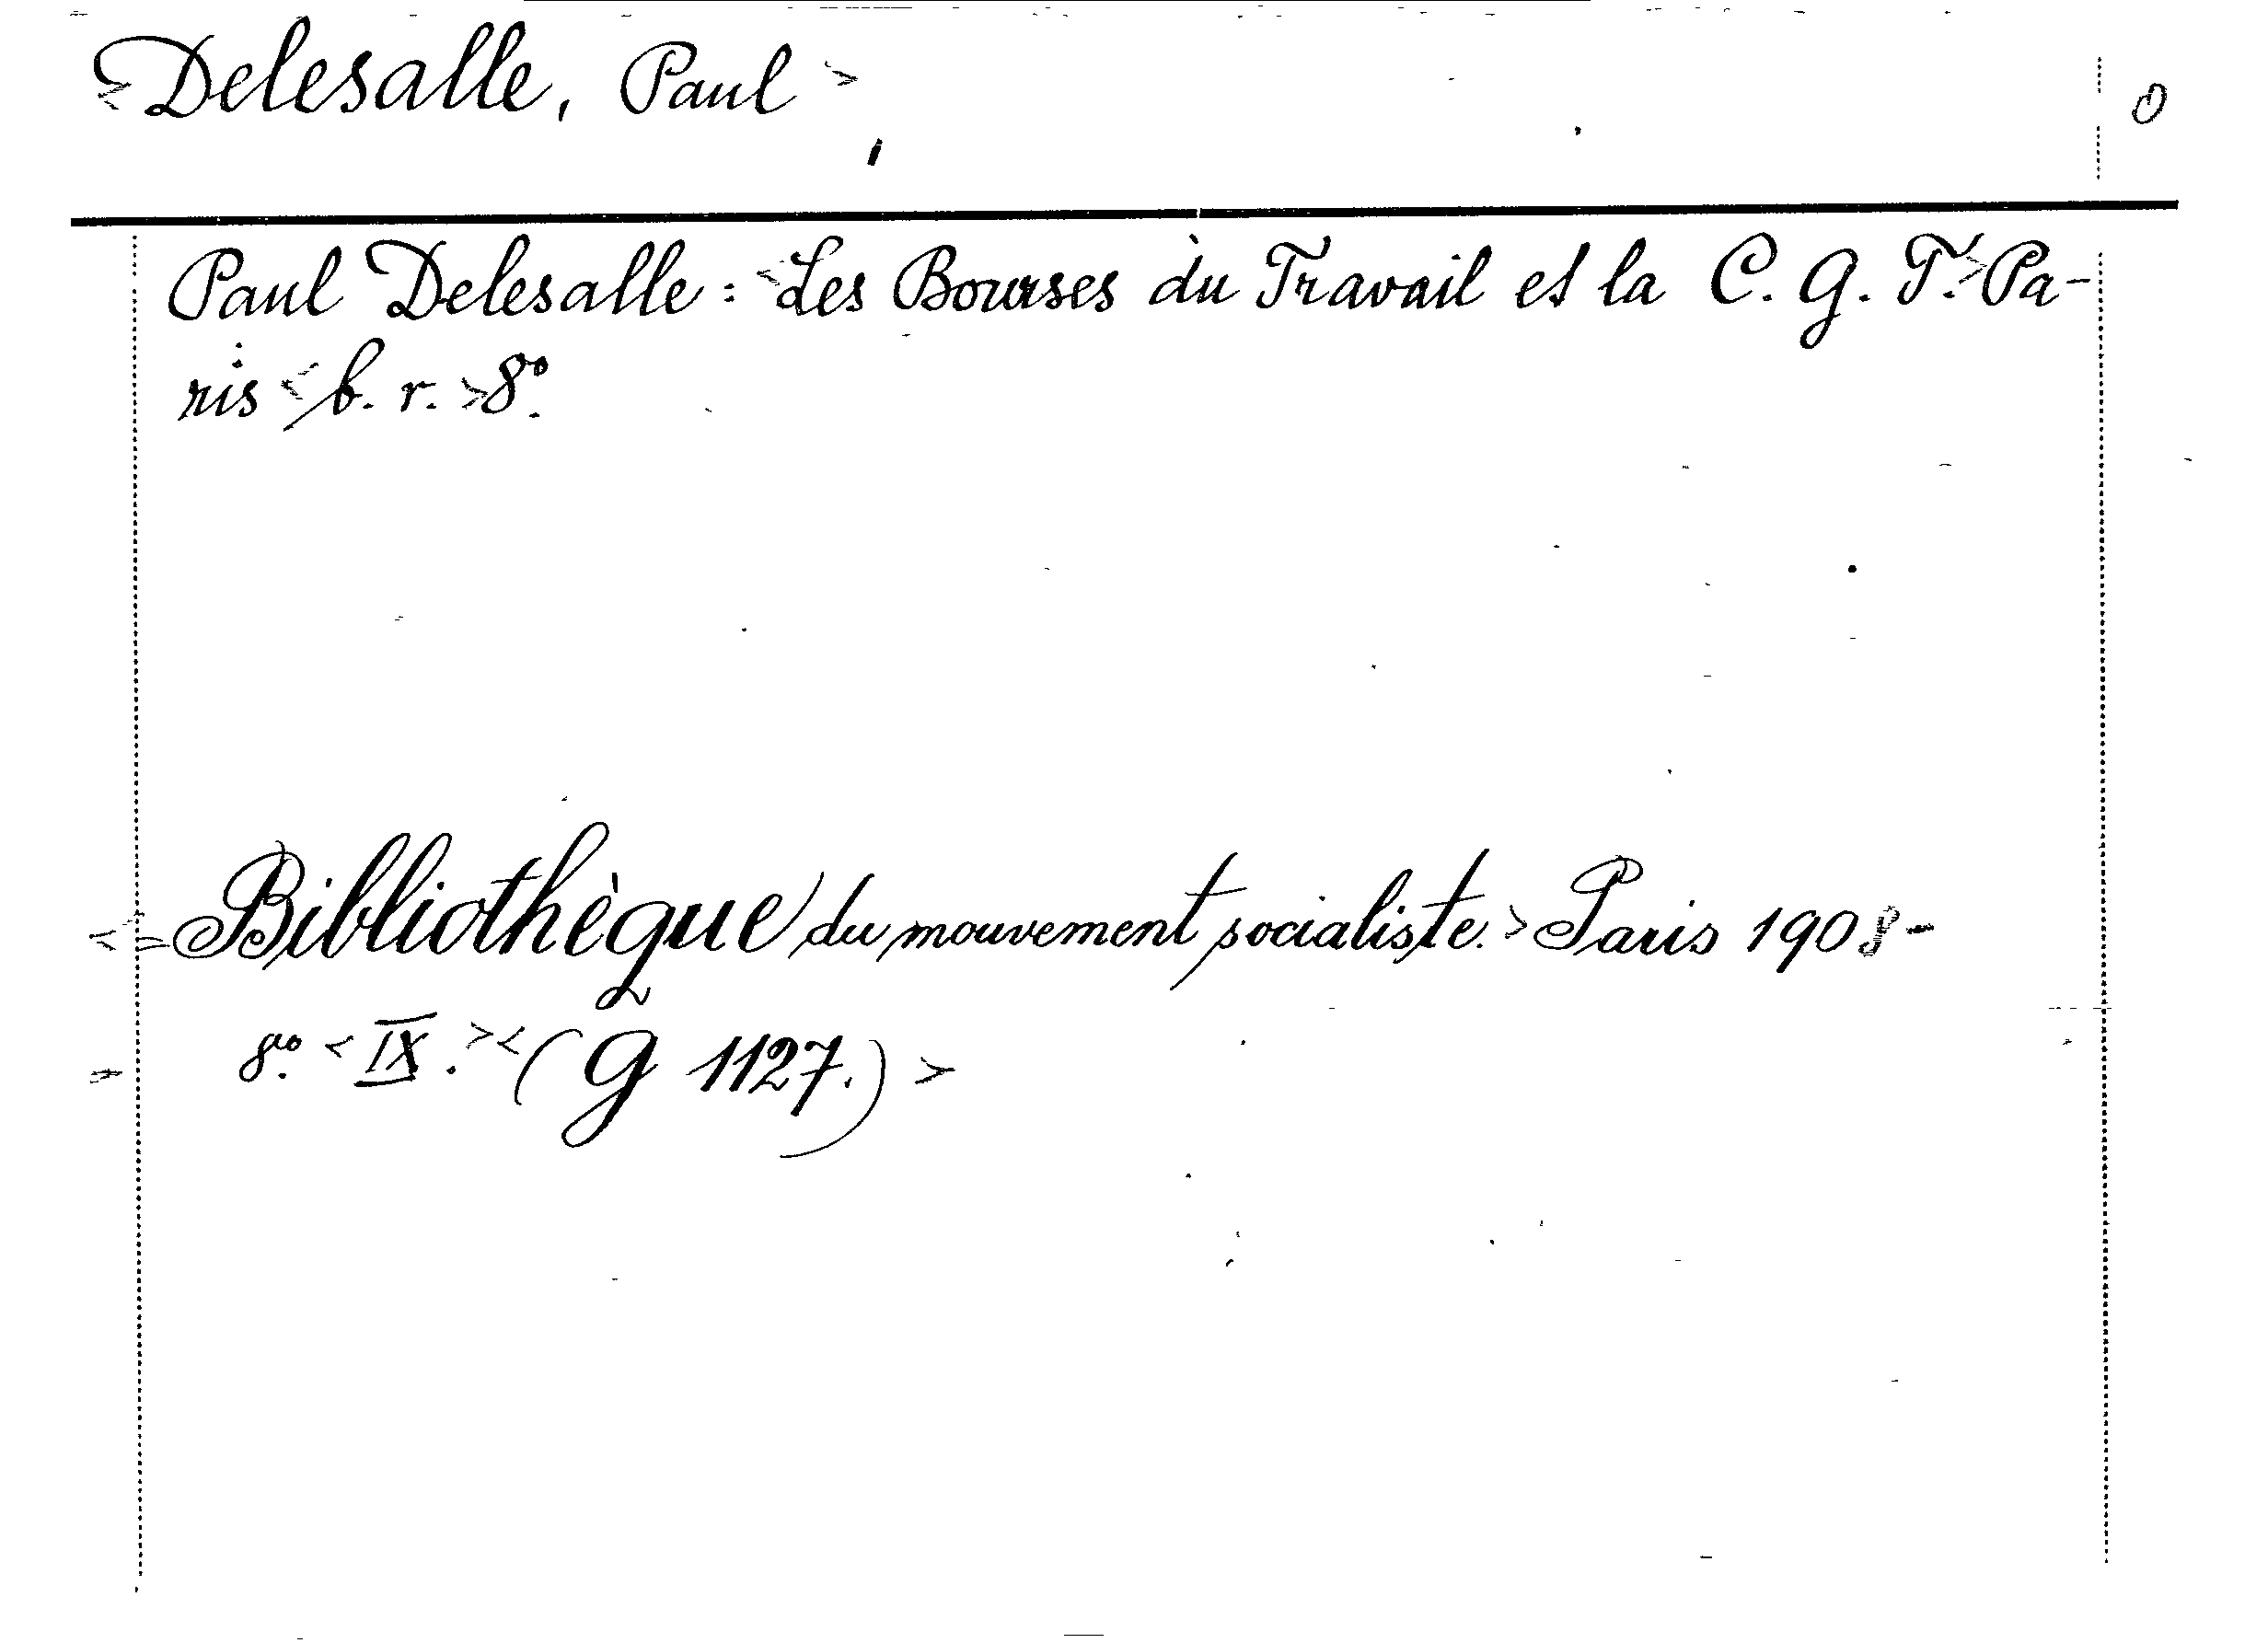 <Delesalle, Paul>
O
Paul Delesalle: <Les Bourses du Travail et la C. G. T.> Pa-
ris <b. r.> 8º.
<Bibliothèque du mouvement socialiste.> Paris 1908-
8º. <IX.> <(G 1127.)>